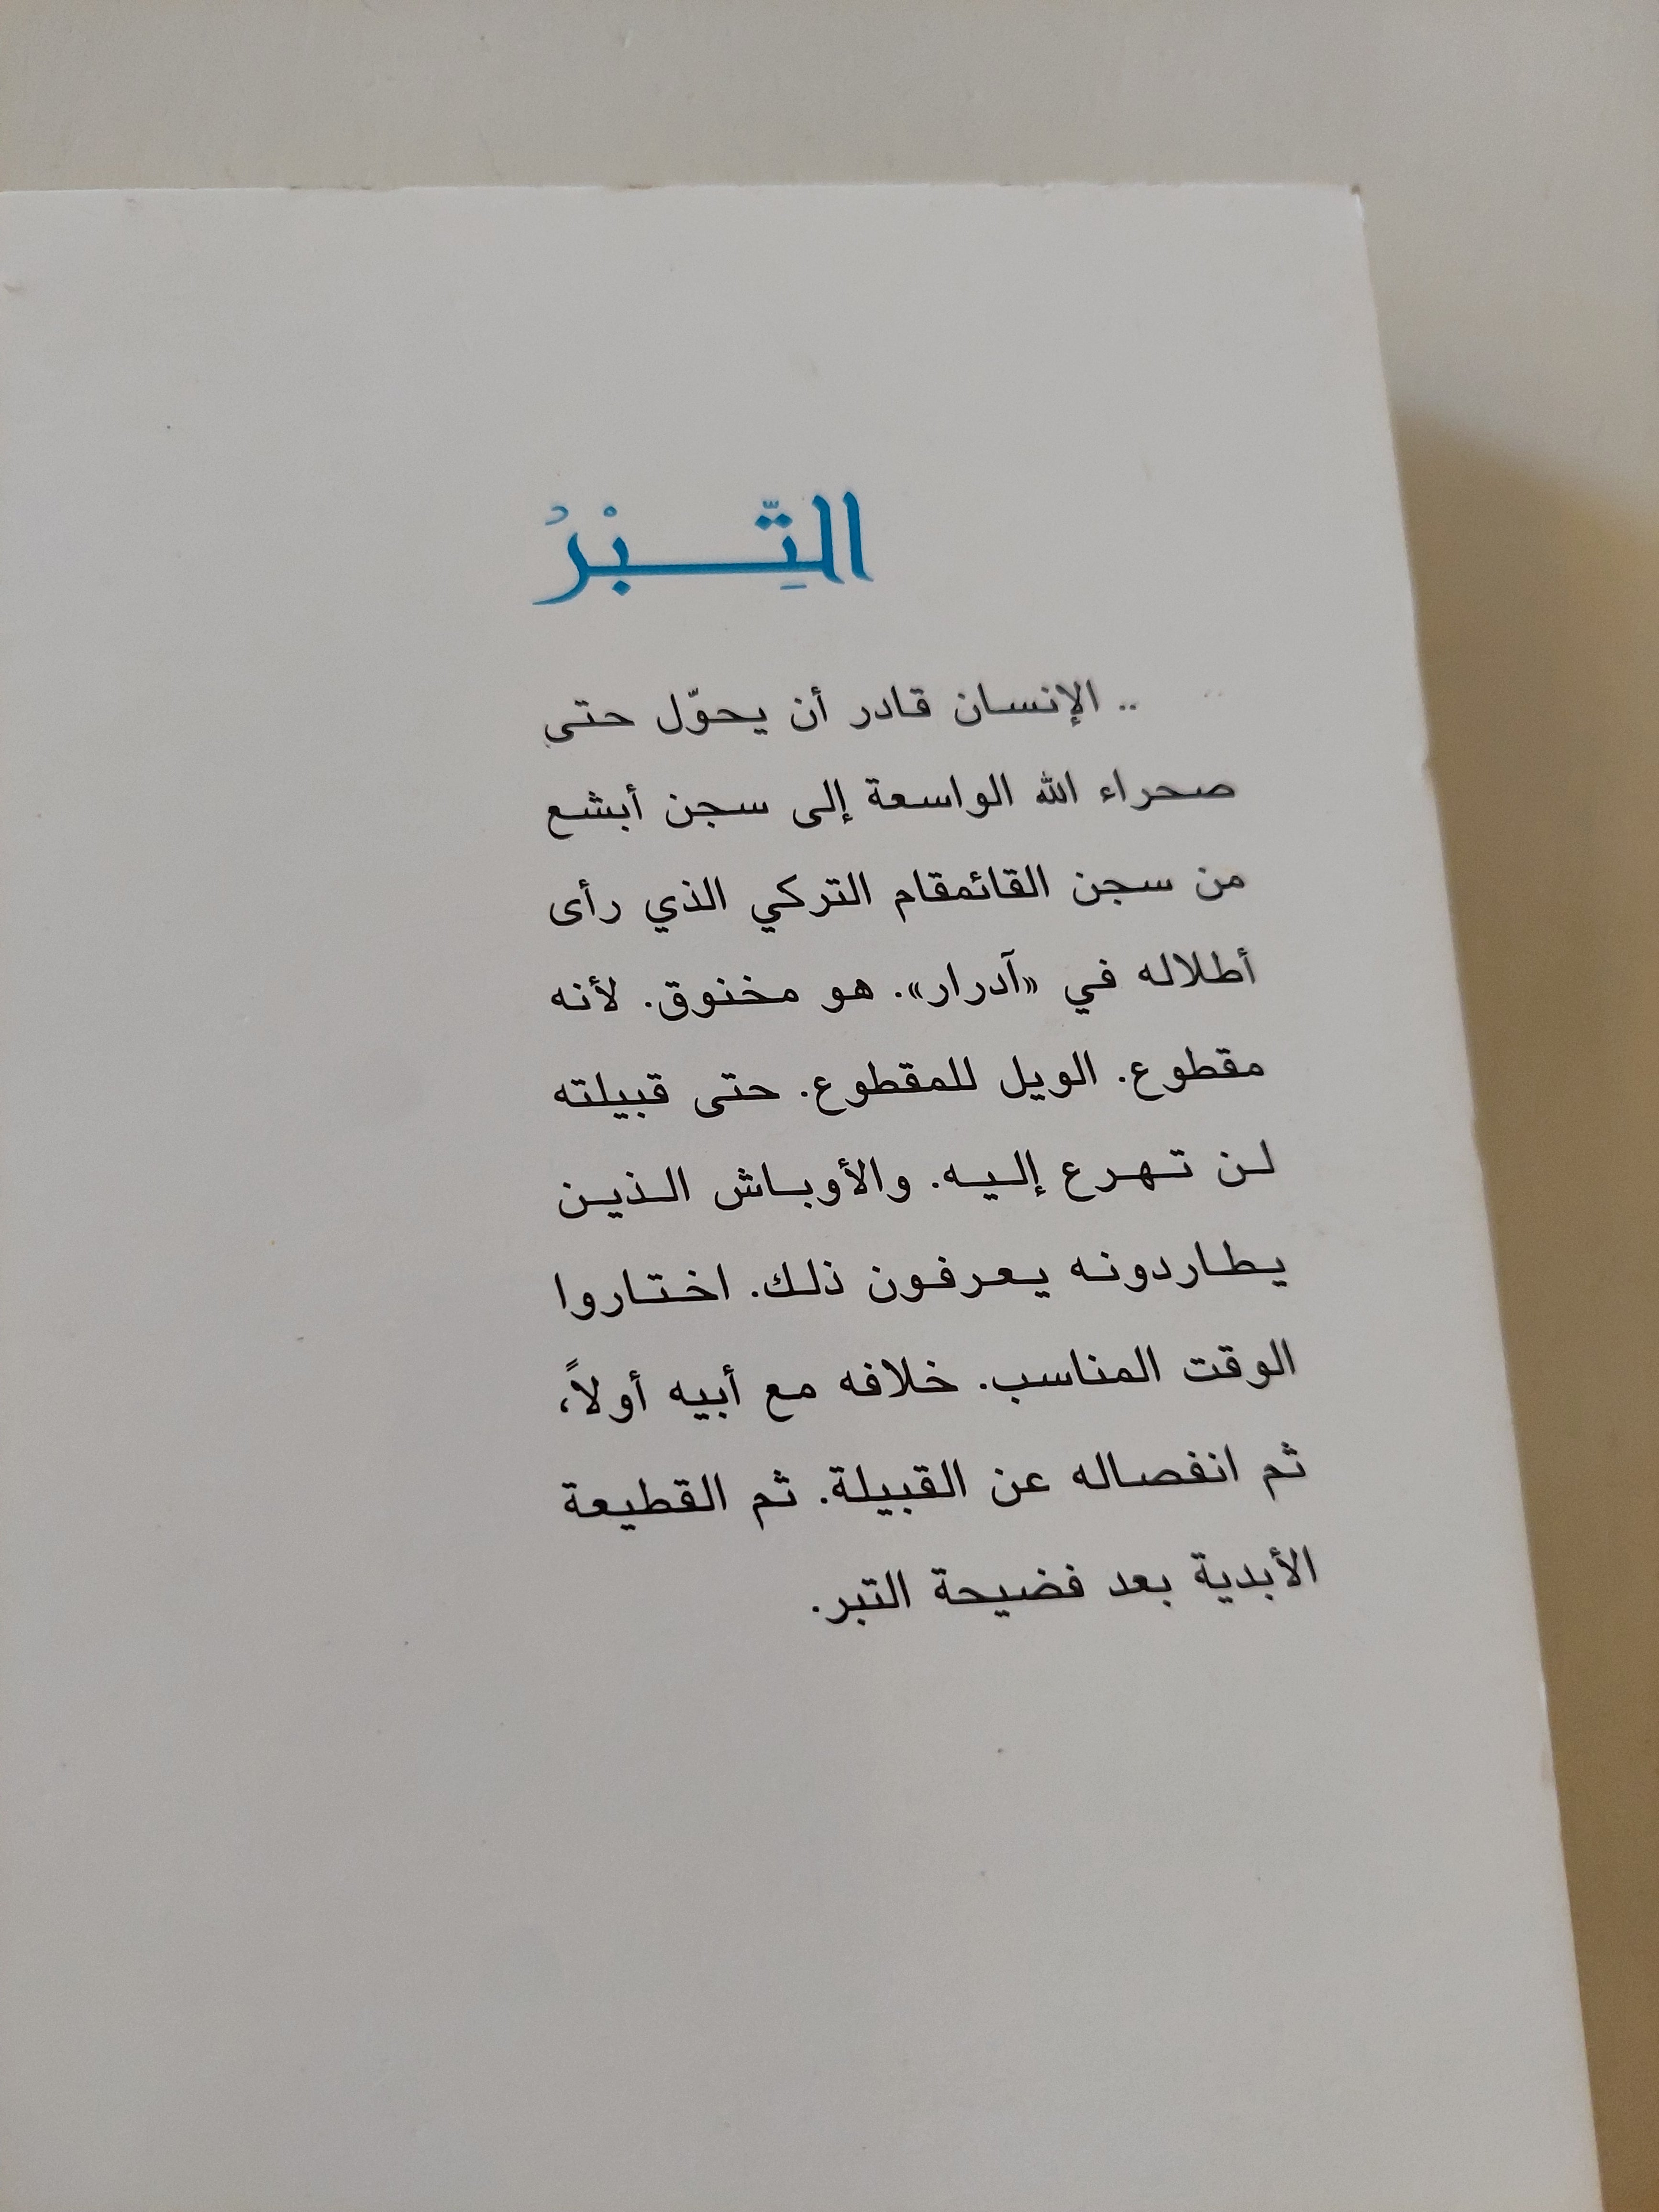 التِّبْرُ
.. الإنسان قادر أن يحوّل حتى
صحراء الله الواسعة إلى سجن أبشع
من سجن القائمقام التركي الذي رأى
أطلاله في «آدرار». هو مخنوق. لأنه
مقطوع. الويل للمقطوع. حتى قبيلته
لن تهرع إليه. والأوباش الذين
يطاردونه يعرفون ذلك. اختاروا
الوقت المناسب. خلافه مع أبيه أولاً،
ثم انفصاله عن القبيلة. ثم القطيعة
الأبدية بعد فضيحة التبر.